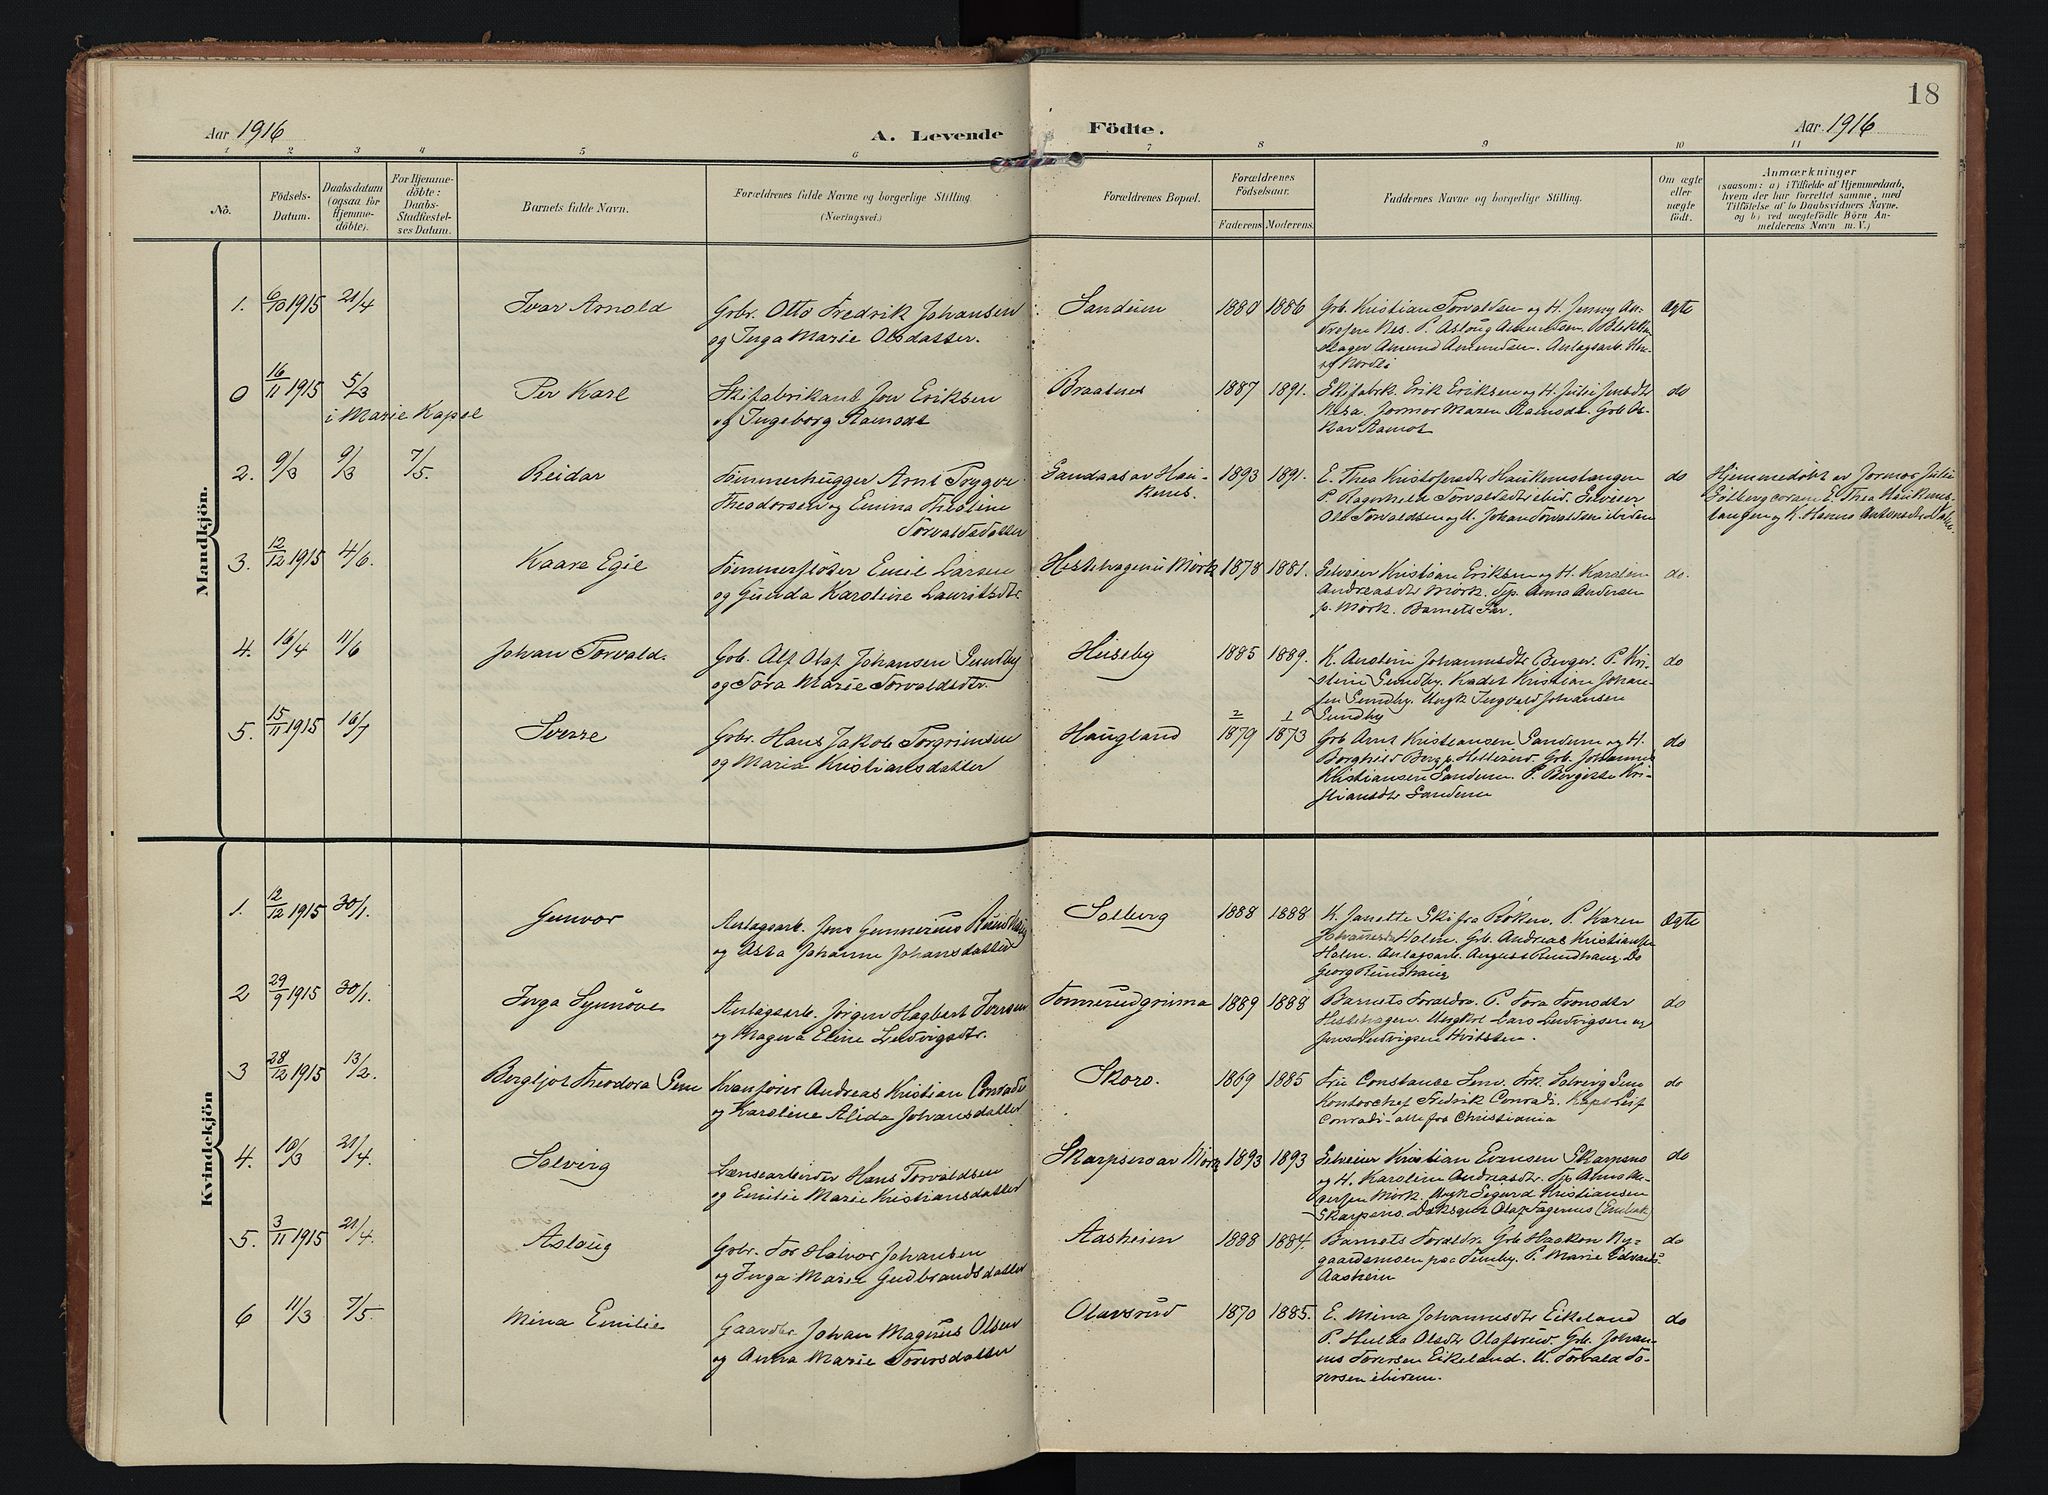 18
Aar 1916
A. Levende
Födte.
Aar 1916
1 2 3 4 5 6 7 8 9 10 11
No.
Födsels-
Datum.
Daabsdatum
(ogsaa for
Hjemme-
döbte).
For Hjemme-
döbte:
Daabs-
Stadfæstel-
ses Datum.
Barnets fulde Navn.
Forældrenes fulde Navne og borgerlige Stilling
(Næringsvei.)
Forældrenes Bopæl.
Forældrenes
Födselsaar.
Faderens Moderens.
Faddernes Navne og borgerlige Stilling.
Om ægte
eller
uægte
födt.
Anmærkninger
(saasom: a) i Tilfælde af Hjemmedaab,
hvem der har forrettet samme, med
Tilföielse af to Daabsvidners Navne.
og b) ved uægtefödte Börn An-
melderens Navn m. V.)
Mandkjön.
1. 6/10 1915 21/4
Ivar Arnold
Grbr. Otto Fredrik Johansen
og Inga Marie Olsdatter.
1880 1886
Grb. Kristian Torvaldsen og H. Jenny An-
dresen Nes. P. Aslaug Amundsen. Blikken-
slager Amund Amundsen. Anlagsarb.
Ægte
0 16/11 1915 5/3
i Marie Kapel
Per Karl
Skifabrikant Jon Eriksen
og Ingeborg Aamodt
Braatnes
1887 1891.
Skifabrik. Erik Eriksen og H. Julie
Nesa. Jormor Maren Aamodt. Grb Os-
kar Aamot
do
2. 9/3 9/3 7/5.
Reidar
Tømmerhugger Arnt Trygve
Theodorsen og Emma Theoline
Torvaldsdatter
Sandaas av Hau-
kenes.
1893 1891.
E. Thea Kristofersdtr Haukenestangen
P. Ragnhild Torvaldsdtr ibid. Selveier
Ole Torvaldsen og U. Johan Torvaldsen ibidem
do
Hjemmedøbt av Jormor Julie
Solberg coram E. Thea Haukenes-
tangen og K. Hanna Antonsdtr
3. 12/12 1915 4/6.
Kaare Egil
Tømmerfløter Emil Larsen
og Gunda Karoline Lauritsdtr.
Hestehagen u Mørk
1878 1881.
Selveier Kristian Eriksen og H. Karoline
Andreasdtr Mørk. Tp. Anna Andersen
p. Mørk. Barnets Far.
do.
4. 16/4 11/6
Johan Torvald.
Grb. Alf Olaf Johansen Sundby
og Tora Marie Torvaldsdtr.
Huseby
1885 1889.
K. Anstein Johannesdtr Berger. P. Kri-
stine Sundby. Kadet Kristian Johan-
sen Sundby. Ungk Ingvald Johansen
Sundby
do
5. 15/11 1915 16/7
Sverre
Grbr. Hans Jakob Torgrimsen
og Maria Kristiansdatter
Haugland
2/1879 1/1873
Grb Arnt Kristiansen Sandum og H.
Borghild Berg p. Hellesund. Grb. Johannes
Kristiansen Sandum. P. Birgitte Kri-
stiansdtr Sandum
do
Kvindekjön
1. 12/12 1915 30/1.
Gunvor
Anlagsarb. Jens Gunnerius Rundhaug
og Asta Johanne Johansdatter
Solberg
1888 1888
K. Janette Ski fra Røken. P. Karen
Johannesdtr Holm. Grb. Andreas Kristiansen
Holm. Anlagsarb. August Rundhaug. Do
Georg Rundhaug
Ægte
2 29/9 1915 30/1.
Inga Synnøve
Anlagsarb. Jørgen Hagbart Iversen
og Magna Eline Ludvigsdtr.
Tømmerudgrinna
1889 1888
Barnets Foraldre. P. Tora Tronsdtr
Hestehagen. Ungkrl Lars Ludvigsen og
Jens Ludvigsen Hvitsten.
do
3 28/12 1915 13/2.
Bergljot Theodora Sem
Kranfører Andreas Kristian Conradi
og Karoline Alida Johansdatter
Skoro.
1869 1885
Fru Constanse Sem. Frk Solveig Sem
Kontorchef Fredrik Conradi. Kapt Leif
Conradi - alle fra Christiania
do
4. 10/3 21/4.
Solveig
Lænsearbeider Hans Torvaldsen
og Emilie Marie Kristiansdatter
Skarpsno av Mørk
1893 1893
Selveier Kristian Evensen Skarpsno
og H. Karoline Andreasdtr. Tp Anna An-
dersen Mørk. Ungk Sigurd Kristiansen
Skarpsno. Dæksgut Olaf Fagernes
do
5. 3/11 1915 21/4.
Aslaug
Grbr. Tor Halvor Johansen
og Inga Marie Gudbrandsdatter
Aasheim
1888 1884.
Barnets Foraldre. Grb Haakon Ny-
gaardsmoen paa Temby. P. Marie Edvards.
Aasheim
do
6 11/3 7/5.
Mina Emilie
Gaardbr. Johan Magnus Olsen
og Anna Marie Toversdatter
Olavsrud
1870 1885.
E. Mina Johannesdtr Eikeland
P. Hulda Olsdtr Olafsrud. Grb. Johan-
nes Toversen Eikeland. U. Torvald To-
versen ibidem.
do